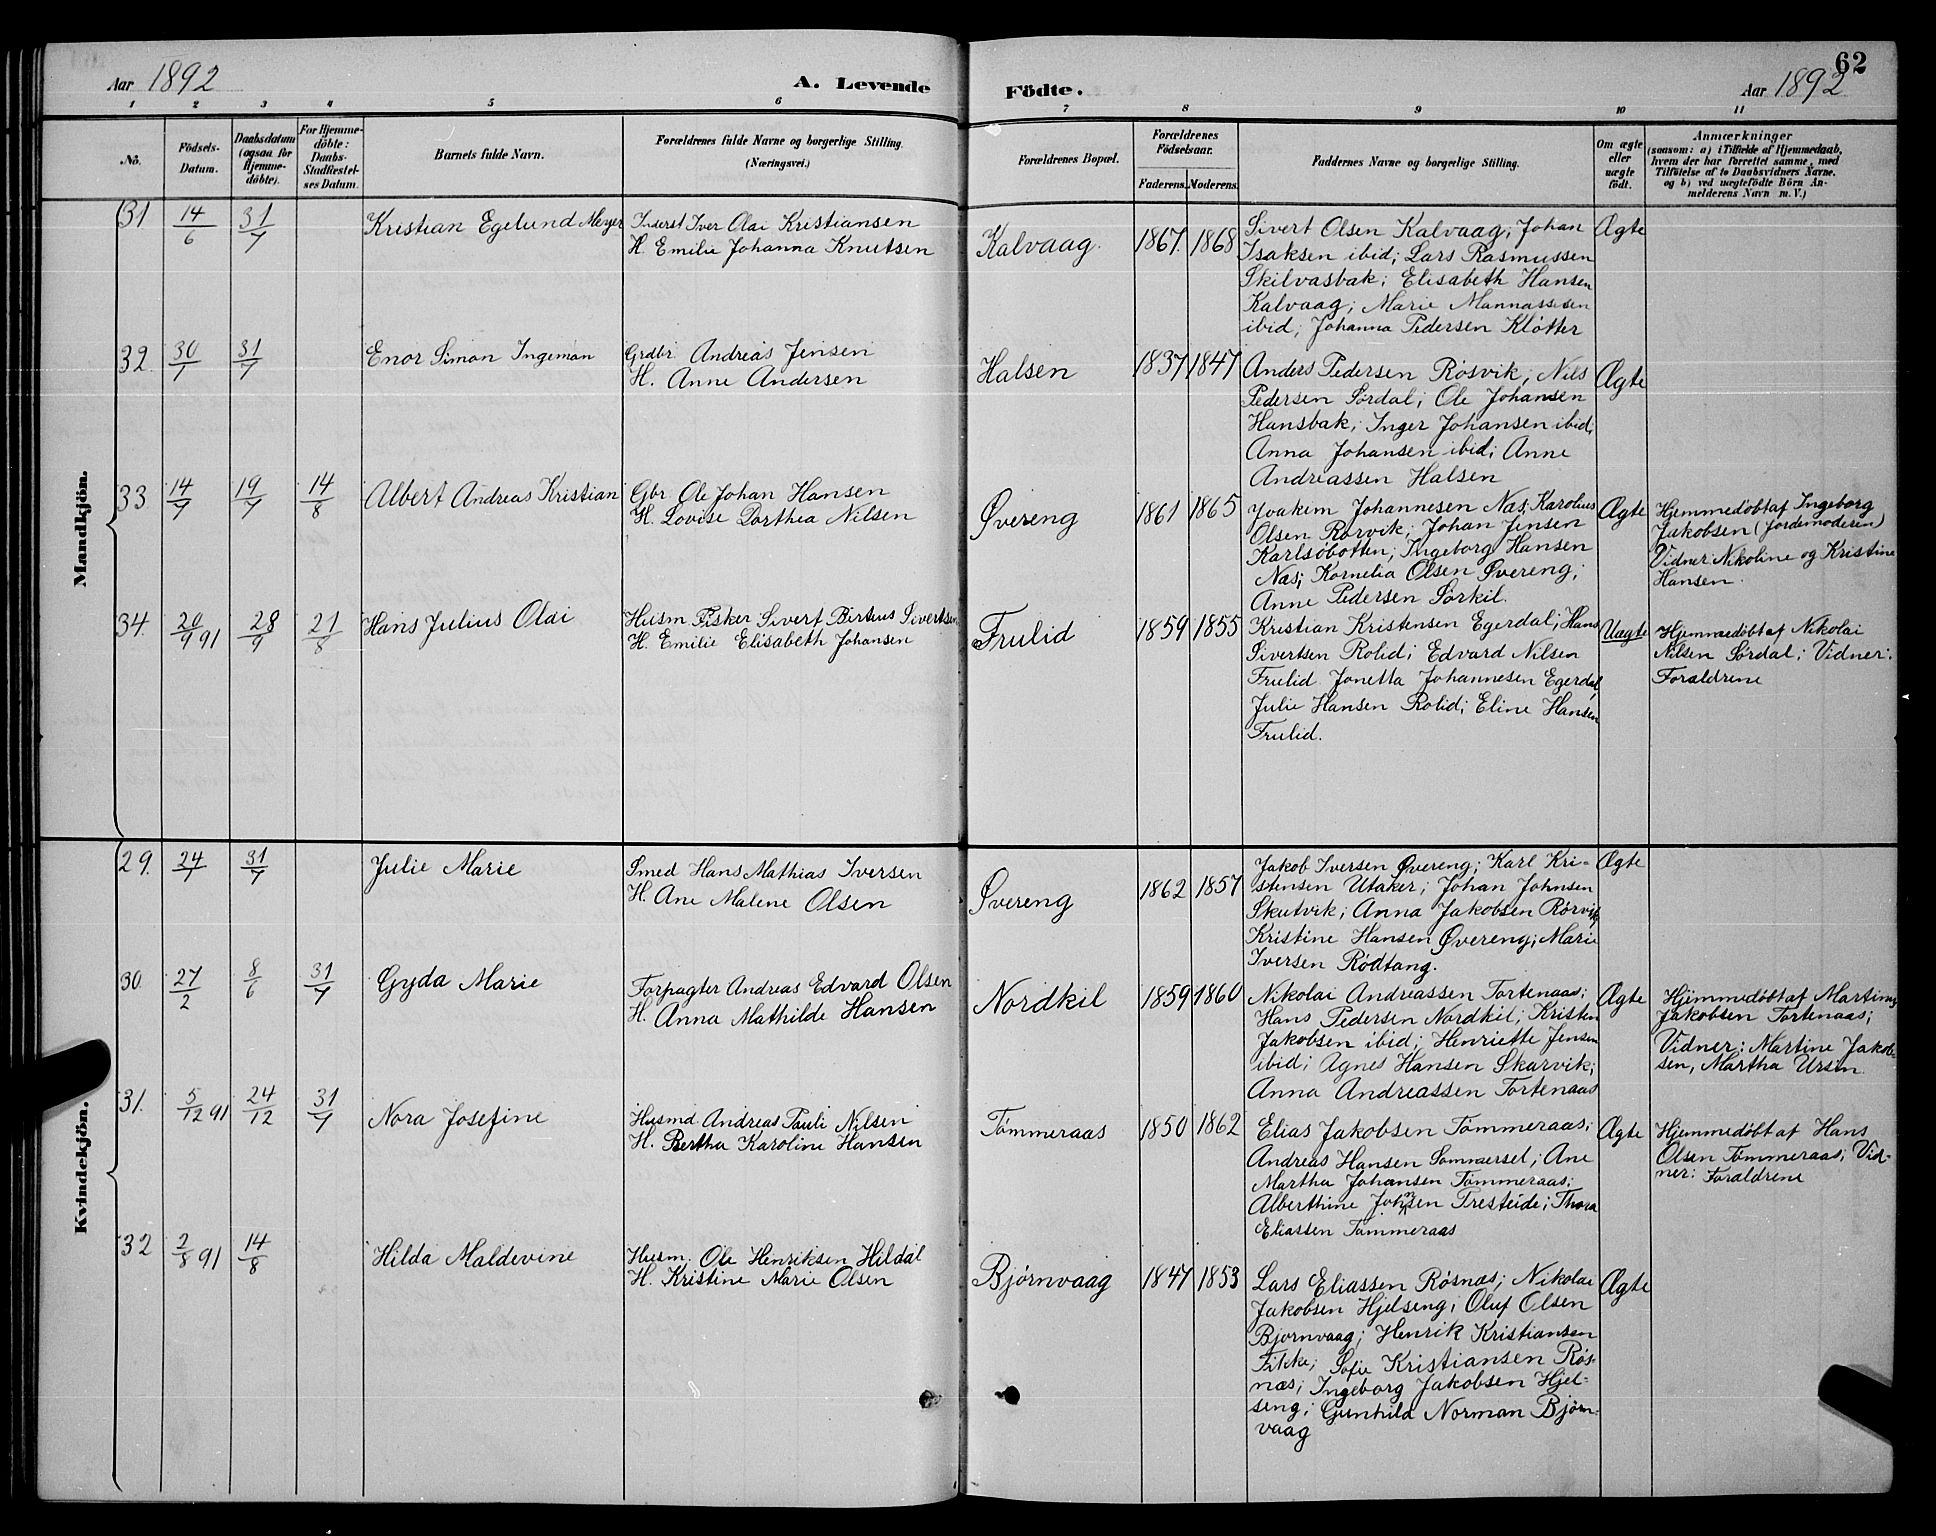 62
Aar 1892
A. Levende Födte.
Aar 1892
1 2 3 4 5 6 7 8 9 10 11
No.
Födsels-Datum.
Daabsdatum (ogsaa for Hjemmedöbte).
For Hjemmedöbte: Daabs-Stadfæstelses Datum.
Barnets fulde Navn.
Forældrenes fulde Navne og borgerlige Stilling. (Næringsvei.)
Forældrenes Bopæl.
Forældrenes Födselsaar.
Faderens. Moderens.
Faddernes Navne og borgerlige Stilling.
Om ægte eller uægte født.
Anmærkninger
(saasom: a) i Tilfælde af Hjemmedaab,
hvem der har forrettet samme, med
Tilföielse af to Daabsvidners Navne.
og b) ved uægtefödte Börn An-
melderens Navn m. V.)
Mandkjön.
31 14/6 31/7 Kristian Egelund Meyer
Inderst Iver Olai Kristiansen
H. Emilie Johanna Knutsen
Kalvaag. 1867. 1868
Sivert Olsen Kalvaag; Johan
Isaksen ibid; Lars Rasmussen
Skilvasbak; Elisabeth Hansen
Kalvaag; Marie Mannassesen
ibid; Johanna Pedersen Kløtter
Ægte
32. 30/1 31/7 Enor Simon Ingeman
Grdbr. Andreas Jensen
H. Anne Andersen
Halsen 1837 1847
Anders Pedersen Røsvik; Nils
Pedersen Sørdal; Ole Johansen
Hansbak; Inger Johansen ibid;
Anna Johansen ibid; Anne
Andreassen Halsen
Ægte
33 14/7 19/7 14/8 Albert Andreas Kristian
Gbr. Ole Johan Hansen
H. Lovise Dorthea Nilsen
Øvereng 1861 1865
Joakim Johannesen Nas; Karolius
Olsen Rørvik; Johan Jensen
Karlsøbotten; Ingeborg Hansen
Næs; Kornelia Olsen Øvereng;
Anne Pedersen Sørkil.
Ægte
Hjemmedøbt af Ingeborg
Jakobsen (Jordemoderen)
Vidner: Nikoline og Kristine
Hansen.
34. 20/9 91 28/9 21/8 Hans Julius Olai
Husm Fisker Sivert Birtius Sivertsen
H. Emilie Elisabeth Johansen
Frulid 1859 1855
Kristian Kristensen Egerdal; Hans
Sivertsen Rolid; Edvard Nilsen
Frulid. Jonetta Johannesen Egerdal,
Julie Hansen Rolid; Eline Hansen
Frulid.
Uægte
Hjemmedøbt af Nikolai
Nilsen Sørdal; Vidner:
Forældrene
Kvindekjön.
29. 24/1 31/7 Julie Marie
Smed Hans Mathias Iversen
H. Ane Malene Olsen
Øvereng 1862 1857
Jakob Iversen Øvereng; Karl Kri-
stensen Utaker; Johan Johnsen
Skutvik; Anna Jakobsen Rørvik
Kristine Hansen Øvereng; Marie
Iversen Rødtang.
Ægte
30. 27/2 8/6 31/7 Gyda Marie
Forpagter Andreas Edvard Olsen
H. Anna Mathilde Hansen
Nordkil 1859 1860
Nikolai Andreassen Tortenaas;
Hans Pedersen Nordkil; Kristen
Jakobsen ibid; Henriette Jensen
ibid; Agnes Hansen Skarvik;
Anna Andreassen Tortenaas
Ægte
Hjemmedøbt af Martinus
Jakobsen Tortenaas;
Vidner: Martine Jakob-
sen, Martha Ursin.
31. 5/12 91 24/12 31/7 Nora Josefine
Husmd Andreas Pauli Nilsen
H. Bertha Karoline Hansen
Tømmeraas 1850 1862
Elias Jakobsen Tømmeraas;
Andreas Hansen Sommersel; Ane
Martha Johansen Tømmeraas;
Alberthine Johnsen Tresteide; Thora
Eliassen Tømmeraas
Ægte
Hjemmedøbt af Hans
Olsen Tømmeraas; Vid-
ner: Forældrene
32 2/8 91 14/8 Hilda Maldevine
Husm. Ole Henriksen Hildal
H. Kristine Marie Olsen
Bjørnvaag 1847 1853
Lars Eliassen Røsnæs; Nikolai
Jakobsen Hjelseng; Oluf Olsen
Bjørnvaag; Henrik Kristiansen
Fikke; Sofie Kristiansen Røs-
næs; Ingeborg Jakobsen Hjel-
seng; Gunhild Norman Bjørn-
vaag
Ægte